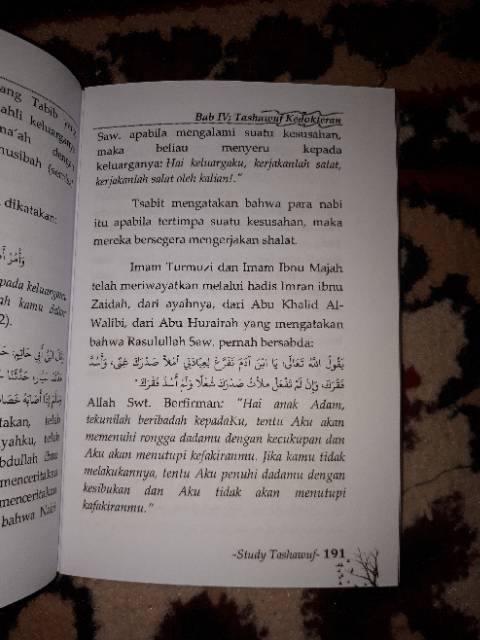 ang Tabib
ahli keluarganya
ma'ah
musibah
dikatakan:
pada keluarga
ah kamu
2).
takan, telah
yahku, telah
bdullah ibnu
menceritakan
menceritakan
bahwa Nabi
Bab IV; Tashawuf Kedokteran
Saw. apabila mengalami suatu kesusahan,
maka beliau menyeru kepada
keluarganya: Hai keluargaku, kerjakanlah salat,
kerjakanlah salat oleh kalian!."
Tsabit mengatakan bahwa para nabi
itu apabila tertimpa suatu kesusahan, maka
mereka bersegera mengerjakan shalat.
Imam Turmuzi dan Imam Ibnu Majah
telah meriwayatkan melalui hadis Imran ibnu
Zaidah, dari ayahnya, dari Abu Khalid Al-
Walibi, dari Abu Hurairah yang mengatakan
bahwa Rasulullah Saw. pernah bersabda:
يَقُولُ اللَّهُ تَعَالَى: يَا ابْنَ آدَمَ تَفَرَّغْ لِعِبَادَتِي أَمْلَأْ صَدْرَكَ غِنًى، وَأَسُدَّ
فَقْرَكَ، وَإِنْ لَمْ تَفْعَلْ مَلَأْتُ صَدْرَكَ شُغْلًا وَلَمْ أَسُدَّ فَقْرَكَ"
Allah Swt. Berfirman: "Hai anak Adam,
tekunilah beribadah kepadaKu, tentu Aku akan
memenuhi rongga dadamu dengan kecukupan dan
Aku akan menutupi kefakiranmu. Jika kamu tidak
melakukannya, tentu Aku penuhi dadamu dengan
kesibukan dan Aku tidak akan menutupi
kafakiranmu."
-Study Tashawuf- 191